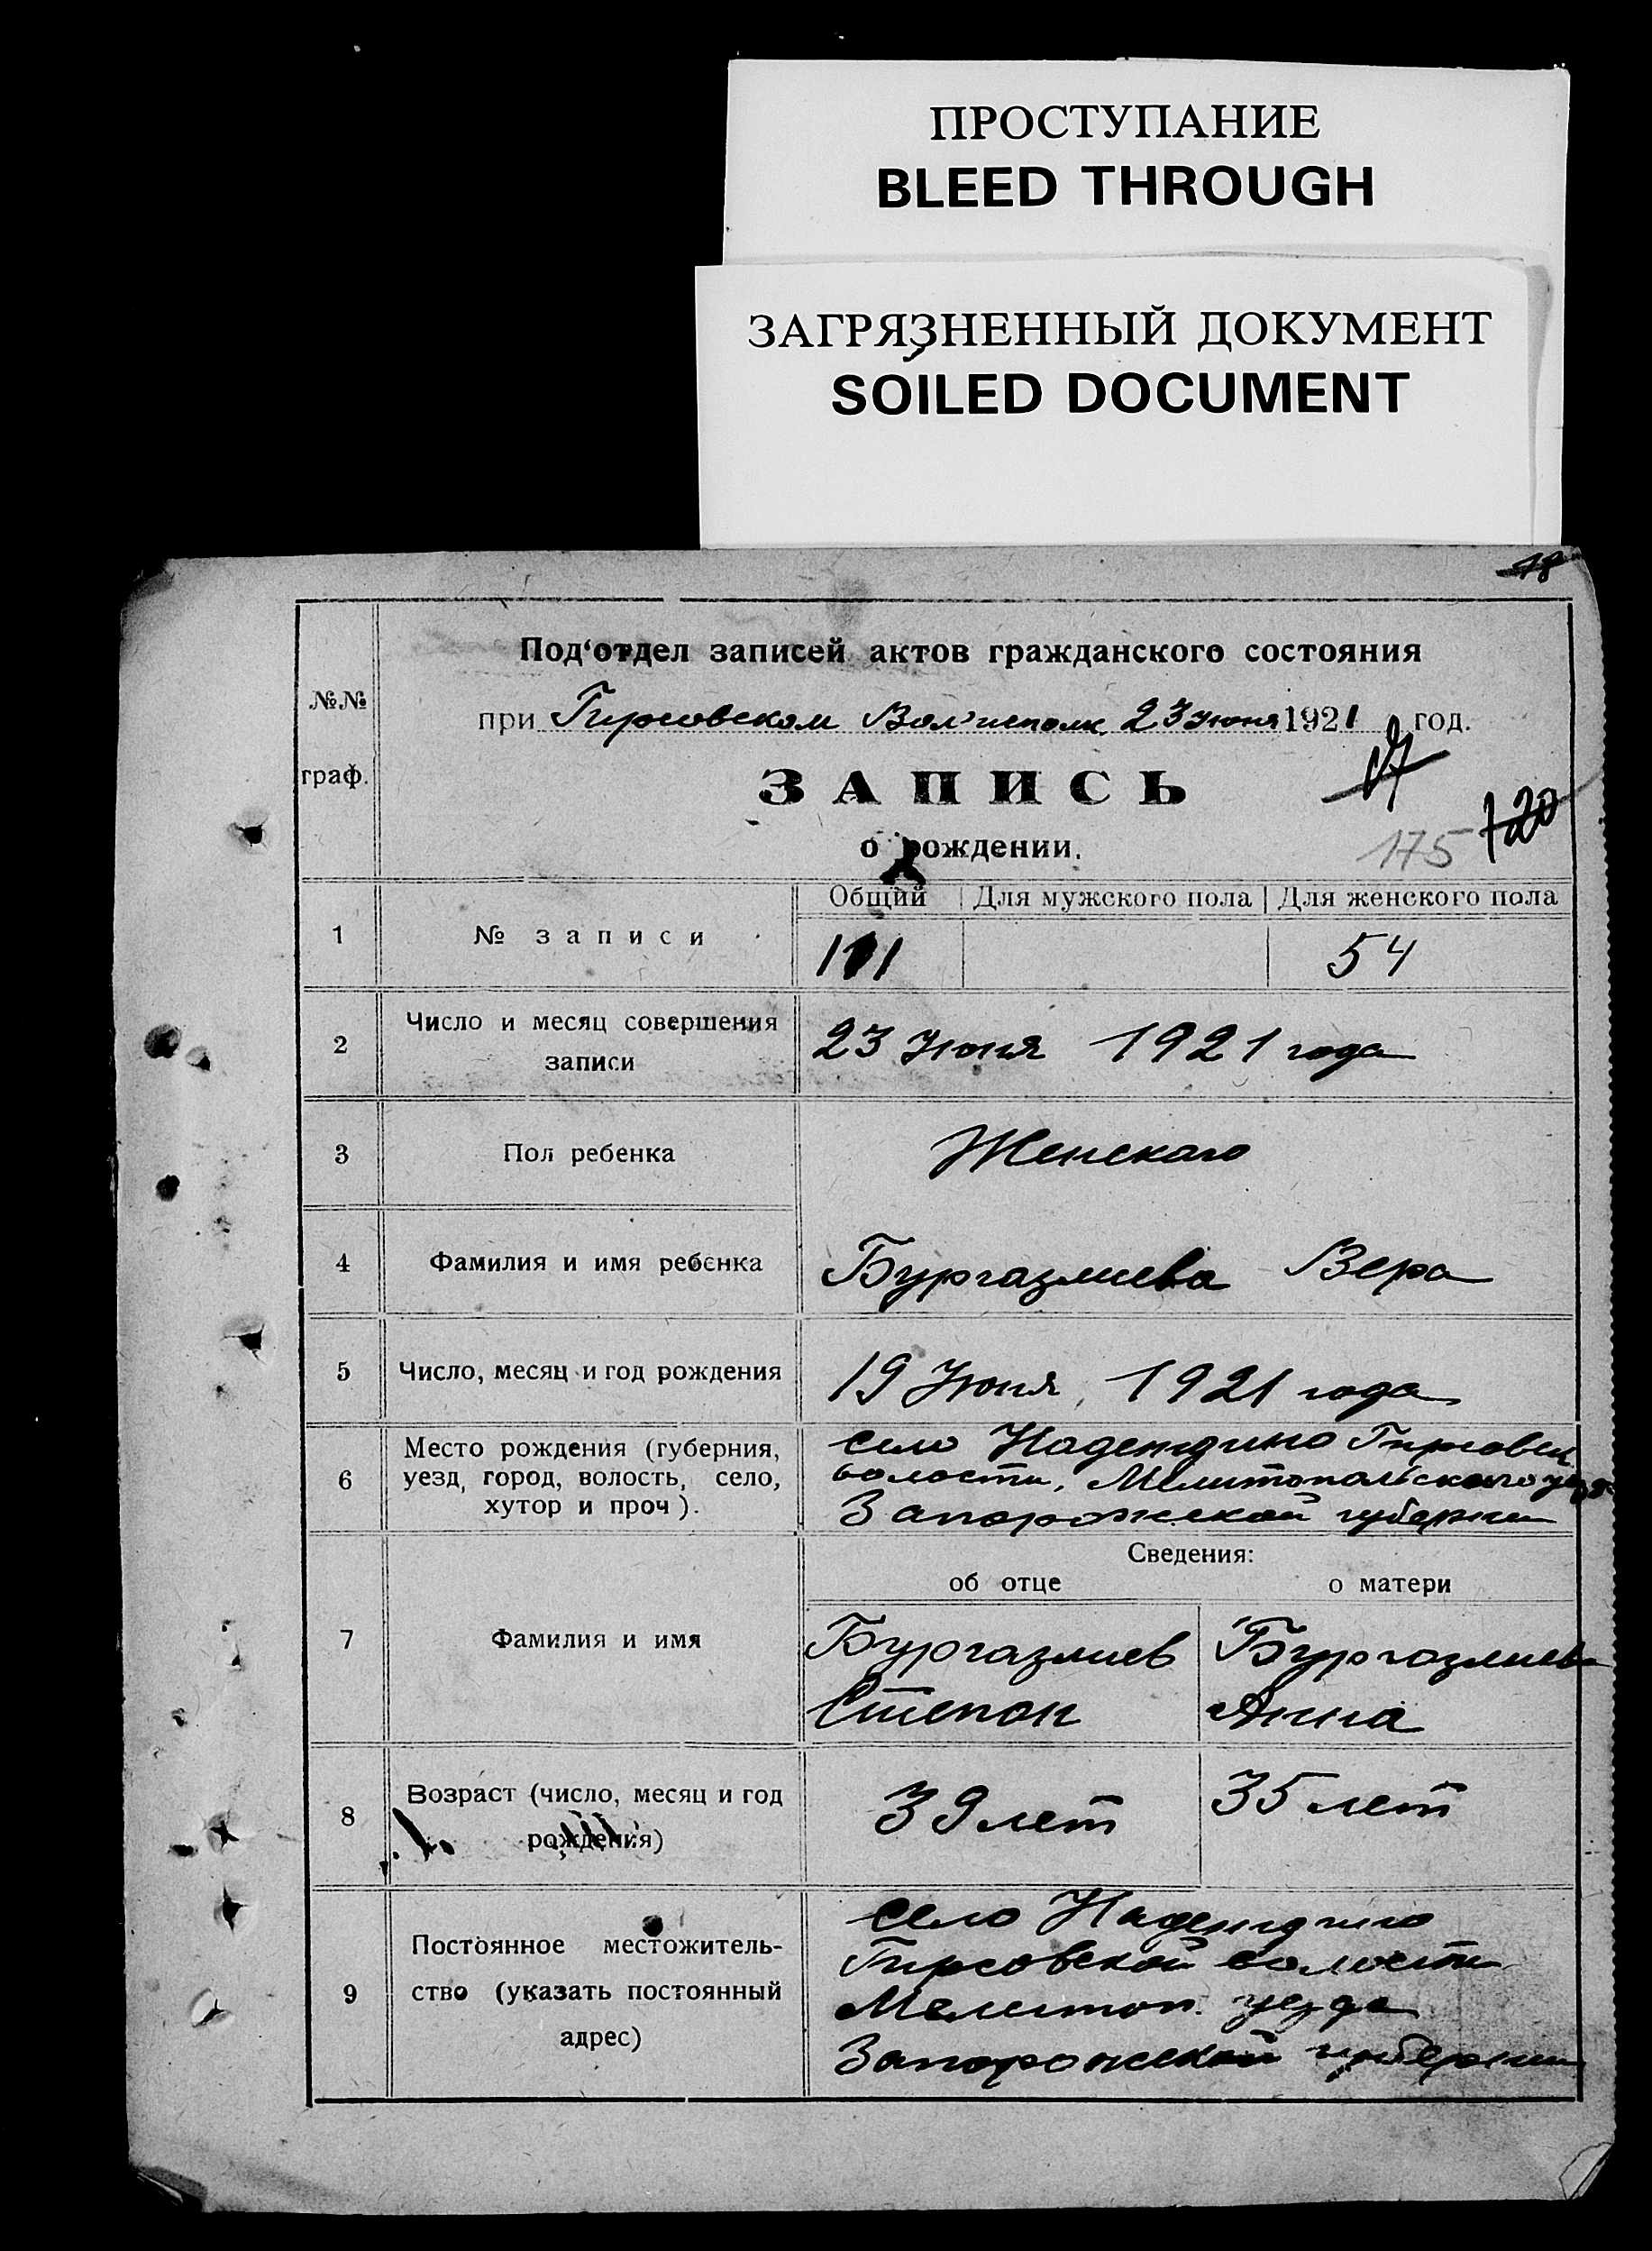 ПРОСТУПАНИЕ
BLEED THROUGH
ЗАГРЯЗНЕННЫЙ ДОКУМЕНТ
SOILED DOCUMENT
18
Под‘отдел записей актов гражданского состояния
№№ граф.
при Гирсовском Вол'исполк. 23 Июня 1921 год.
ЗАПИСЬ
17
120
о рождении.
175
Общий Для мужского пола Для женского пола
1 № записи 54
2 Число и месяц совершения
записи
23 Июня 1921 года
3 Пол ребенка Женского
4 Фамилия и имя ребенка Бургазлиева Вера
5 Число, месяц и год рождения 19 Июня, 1921 года
6 Место рождения (губерния,
уезд, город, волость, село,
хутор и проч).
село Надеждино Гирсовск.
волости, Мелитопольского
Запорожской губернии
Сведения:
об отце о матери
7 Фамилия и имя
Бургазлиев Бургазлиева
Степан Анна
8 Возраст (число, месяц и год
рождения)
39 лет 35 лет
9 Постоянное местожитель-
ство (указать постоянный
адрес)
село Надеждино
Гирсовской волости
Мелитоп. уезда
Запорожской губернии